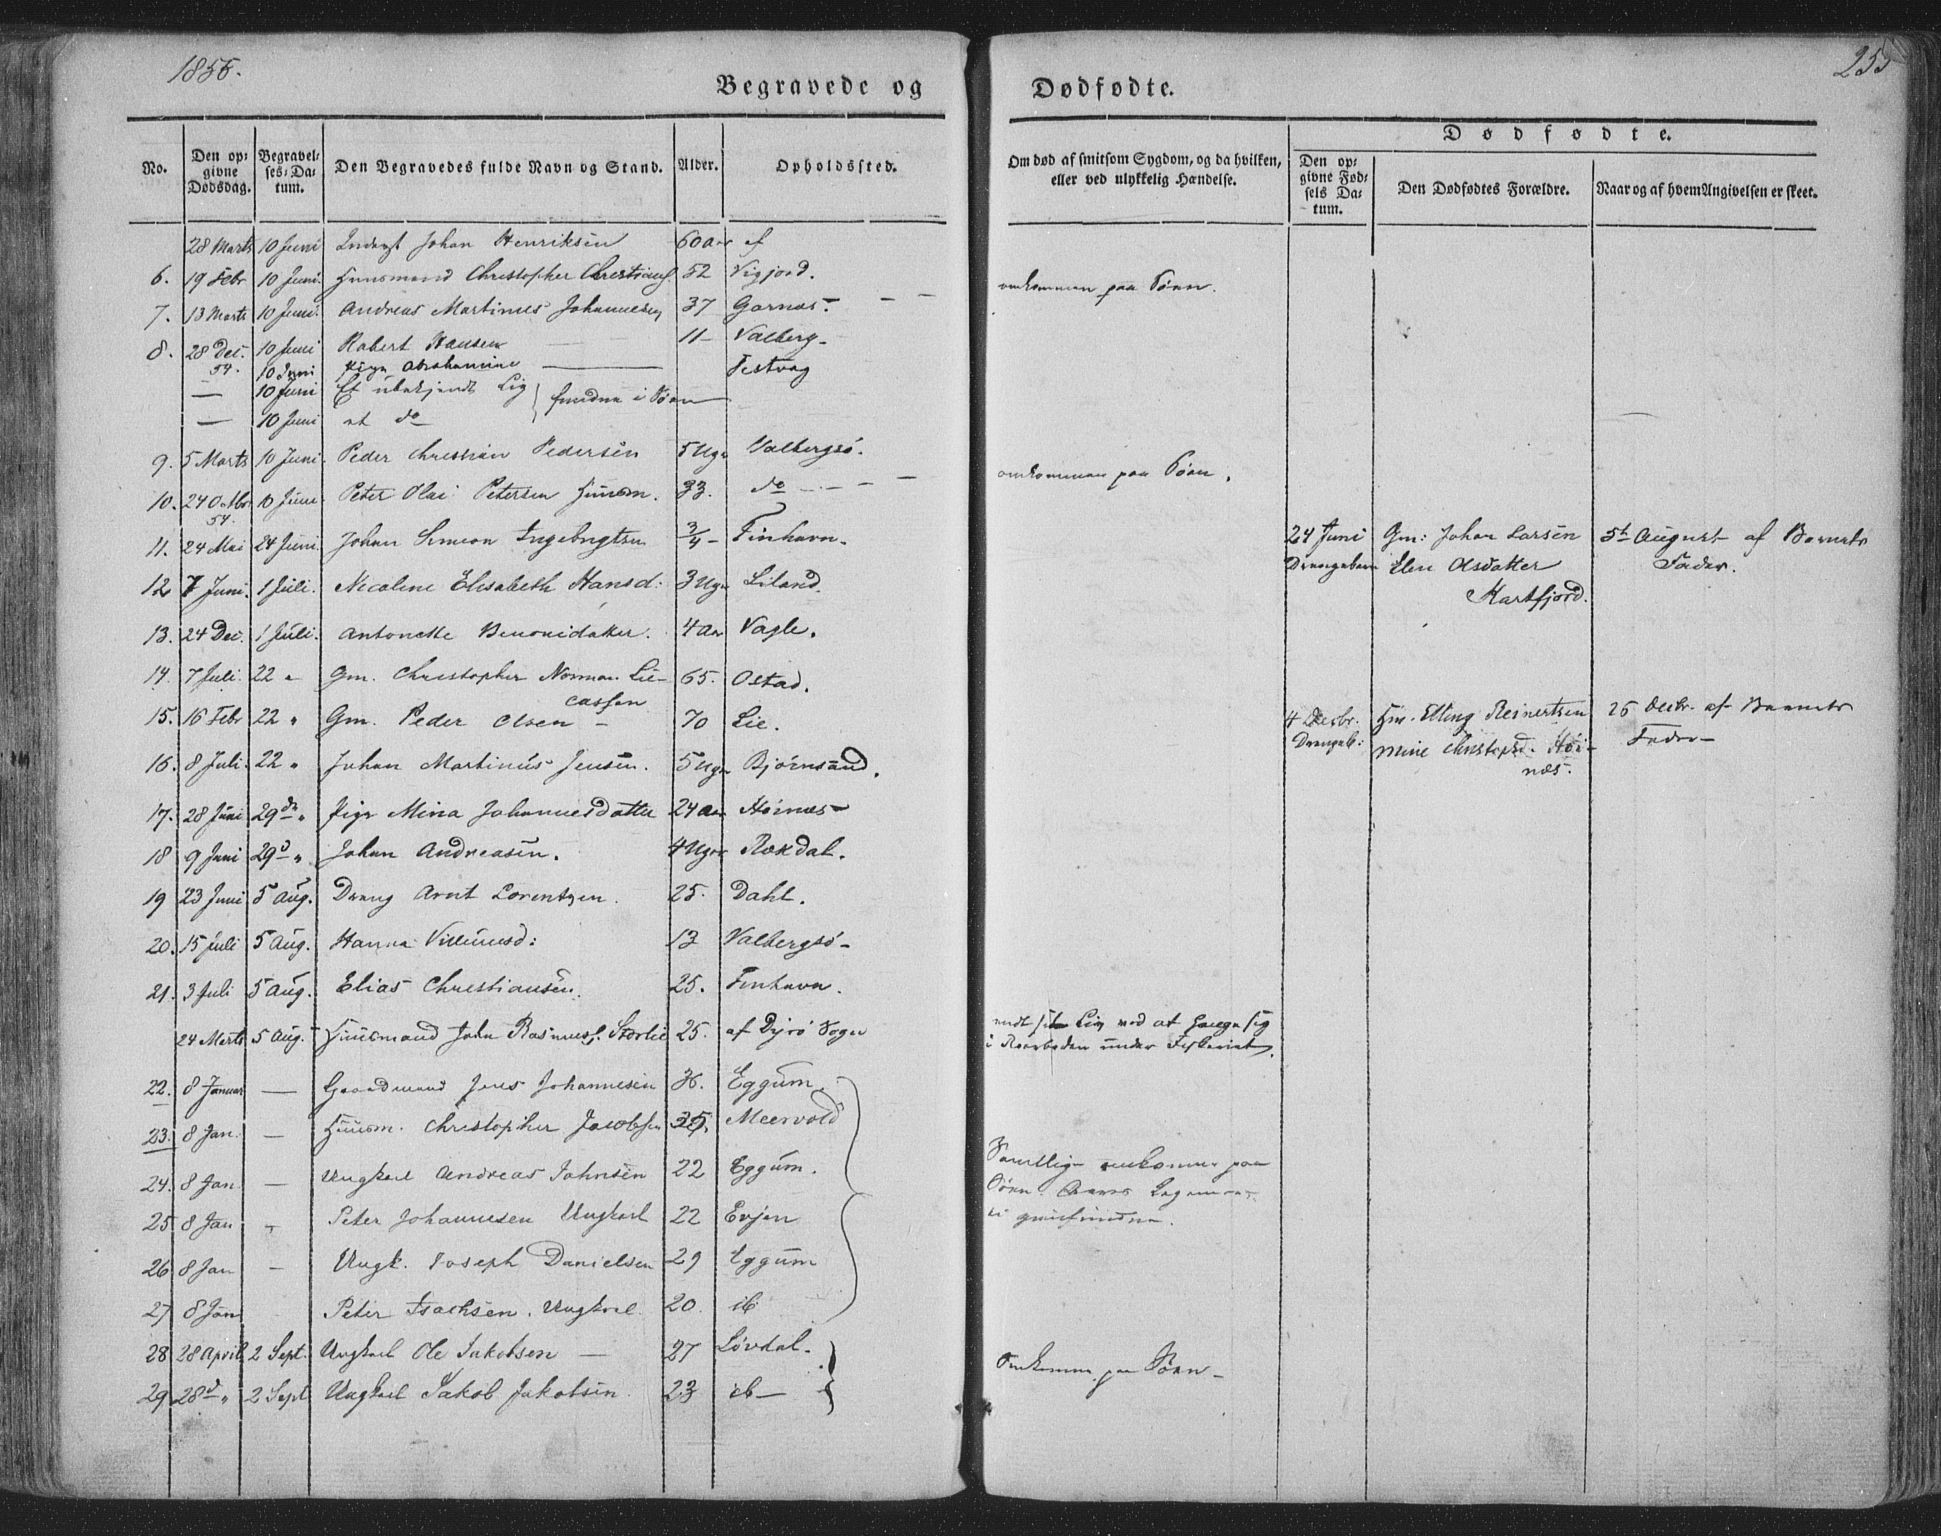 1855.
Begravede og
Dødfødte.
255
No.
Den op-
givne
Dødsdag.
Begravel-
ses-Da-
tum.
Den Begravedes fulde Navn og Stand.
Alder.
Opholdssted.
Om død af smitsom Sygdom, og da hvilken,
eller ved ulykkelig Hændelse.
Dødfødte.
Den op-
givne Fød-
sels Da-
tum.
Den Dødfødtes Forældre.
Naar og af hvem Angivelsen er skeet.
28 Marts 10 Juni Johan Henriksen 60 aar af
6. 19 Febr 10 Juni. Huusmand Christopher Christians. 52 Vigjord.
omkommen paa Søen.
7. 13 Marts 10 Juni. Andreas Martinus Johannesen 37 Garnæs -
8. 28 Dec. 10 Juni Robert Hansen 11 - Valberg -
54. 10 Juni Pige Abrahamine Festvag
— 10 Juni Et ubekjendt Lig } fundne i Søen
— 10 Juni et do
9. 5 Marts 10 Juni. Peder Christian Pedersen 5 Ugr Valbergsø.
10. 24 Octbr 10 Juni Peter Olai Petersen Huusm. 33. do
54.
omkommen paa Søen.
11. 24 Mai 24 Juni. Johan Simeon Ingebrigtsen 3/4 - Finhavn.
24 Juni Gm: Johan Larsen 5t August af Barnets
Drengebarn Elen Olsdatter Fader.
Hartfjord.
12 7 Juni. 1 Juli. Nicoline Elisabeth Hansd: 3 Ugr Liland.
13. 24 Dec. 1 Juli. Antonette Benonidatter. 4 aar Vagle.
14. 7 Juli. 22 " Gm. Christopher Norman Lie- 65. Ostad.
cassen
15. 16 Febr 22 " Gm. Peder Olsen - 70 Lie.
4 Decbr. Hm. Elling Reinertsen 26 Decbr. af Barnets
Drengeb: Mine Christophd. Høi- Fader -
næs.
16. 8 Juli. 22 " Johan Martinus Jensen. 5 Ugr Bjørnsand.
17. 28 Juni 29de " Pige Mina Johannesdatter 24 aar Høinæs -
18 9 Juni 29d " Johan Andreasen. 4 Ugr Røkdal.
19 23 Juni 5 Aug. Dreng Arnt Lorentzen. 25. Dahl.
20. 15 Juli 5 Aug. Hanna Villumsd: 13 Valbergsø -
21. 3 Juli 5 Aug. Elias Christiansen. 25. Finhavn.
24 Marts 5 Aug. Huusmand John Rasmuss. Storlie 25. af Dyrø Sogn
ved at hænge sig
i Roerboden under Fiskeriet.
22. 8 Januar — Gaardmand Jens Johannesen 36. Eggum.
23. 8 Jan. — Huusm. Christopher Jacobsen 35. Meervold
24. 8 Jan — Ungkarl Andreas Johnsen 22 Eggum.
Samtlige omkomne paa
Søen.
25 8 Jan " Peter Johannesen Ungkarl 22 Evjen
26 8 Jan — Ungk. Joseph Danielsen 29 Eggum
27 8 Jan Peter Isachsen. Ungkarl 20. ib
28 28 April 2 Sept. Ungkarl Ole Jakobsen — 27 Løvdal.
Omkomne paa Søen -
29 28d " 2 Sept Ungkarl Jakob Jakobsen. 23 ib —